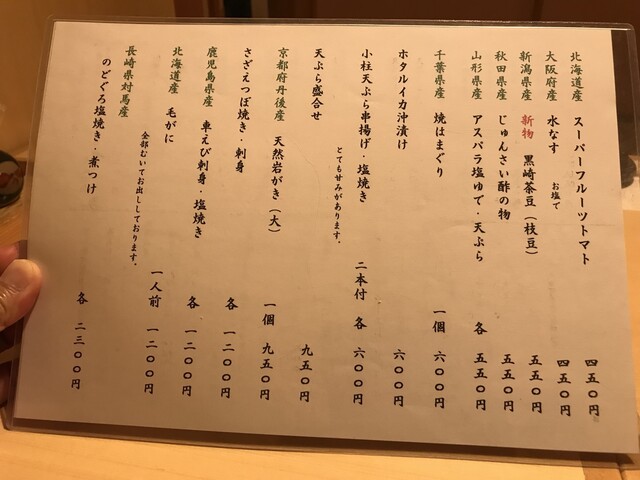 北海道産 スーパーフルーツトマト 四五〇円
大阪府産 水なす お塩で 四五〇円
新潟県産 新物 黒崎茶豆(枝豆) 五五〇円
秋田県産 じゅんさい酢の物 五五〇円
山形県産 アスパラ塩ゆで・天ぷら 各 五五〇円
千葉県産 焼はまぐり 一個 六〇〇円
ホタルイカ沖漬け 六〇〇円
小柱天ぷら串揚げ・塩焼き 二本付 各 六〇〇円
とても甘みがあります。
天ぷら盛合せ 九五〇円
京都府丹後産 天然岩がき(大) 一個 九五〇円
さざえつぼ焼き・刺身 各 一二〇〇円
鹿児島県産 車えび刺身・塩焼き 各 一二〇〇円
北海道産 毛がに 一人前 一二〇〇円
全部むいてお出ししております。
長崎県対馬産
のどぐろ塩焼き・煮つけ 各 二三〇〇円